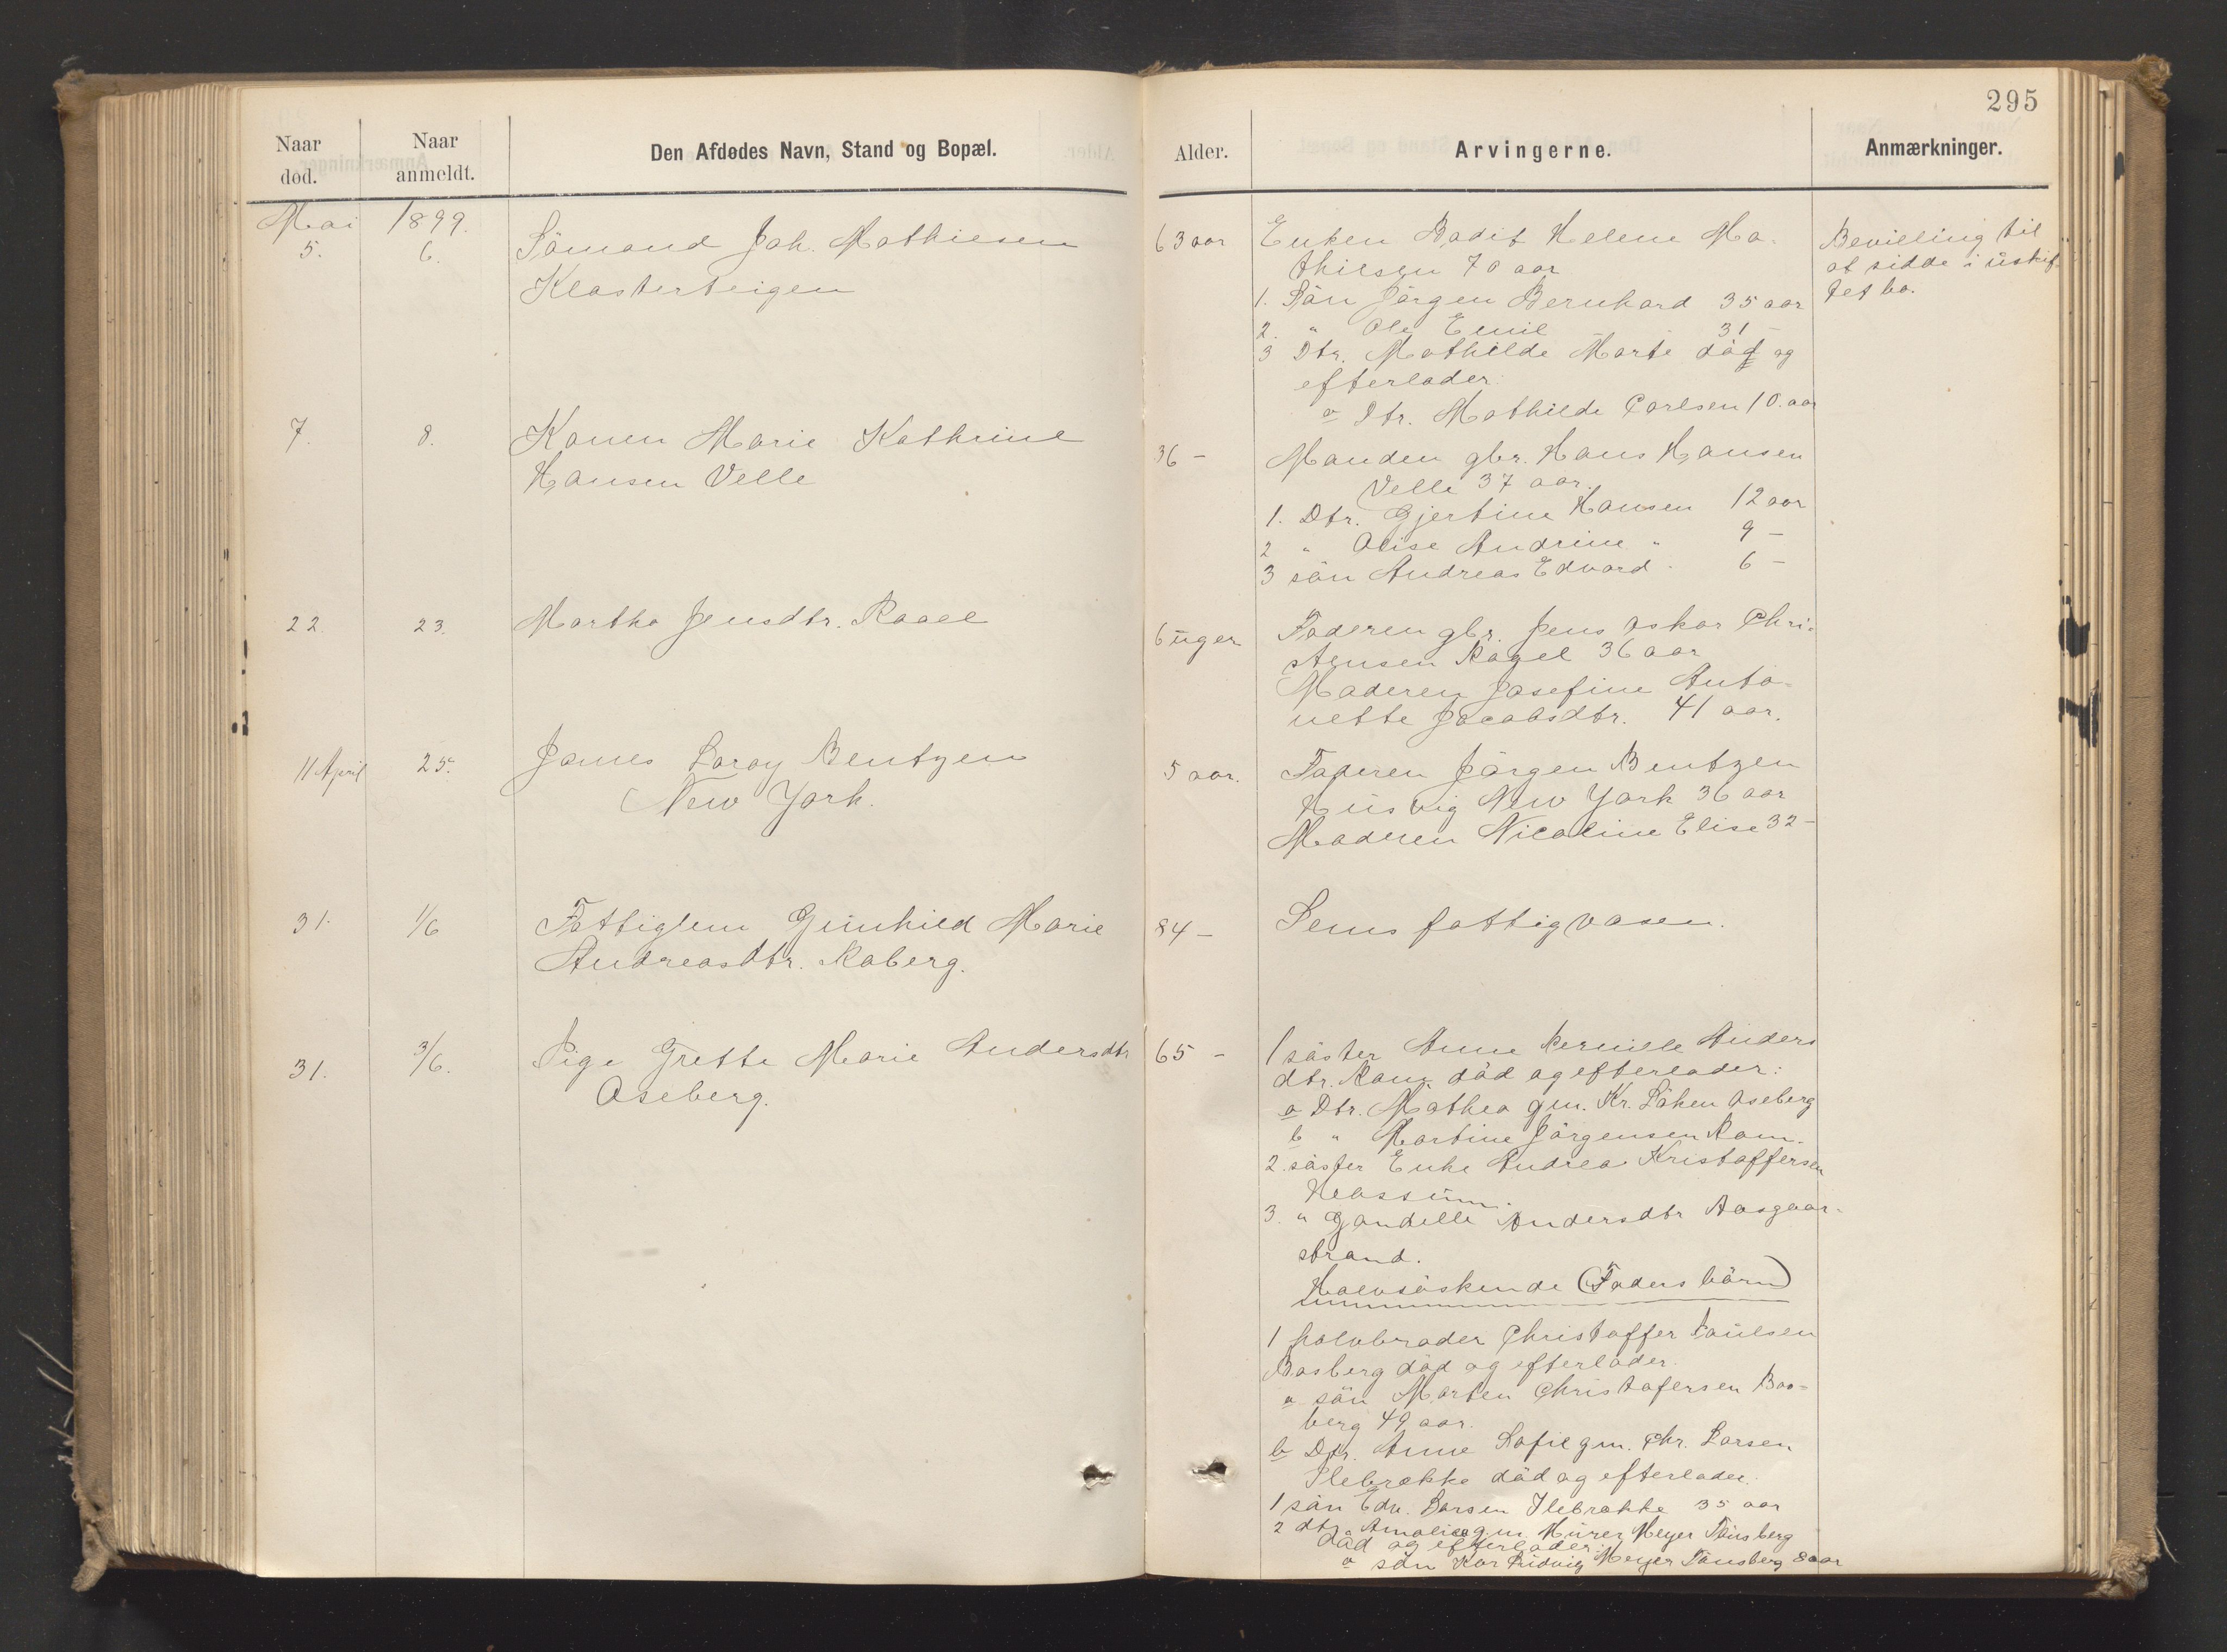 295
Naar død.
Naar anmeldt.
Den Afdødes Navn, Stand og Bopæl.
Alder.
Arvingerne.
Anmærkninger.
Mai 1899.
5. 6. Sömand Joh. Mathiesen
Klosterteigen
63 aar
Enken Badit Helene Ma-
thiesen 70 aar
1. Sön Jörgen Bernhard 35 aar
2. " Ole Emil 31 -
3 Dtr. Mathilde Marte död og
efterlader:
a Dtr. Mathilde Carlsen 10 aar
Bevilling til
at sidde i uskif-
tet bo.
7. 8. Konen Marie Kathrine
Hansen Velle
36 -
Manden gbr. Hans Hansen
Velle 37 aar.
1. Dtr. Gjertine Hansen 12 aar
2 " Olise Andrine " 9 -
3 sön Andreas Edvard " 6 -
22. 23. Martha Jensdtr. Rael
6 uger
Faderen gbr. Jens Oskar Chri-
stensen Ragel 36 aar
Moderen Josefine Anto-
nette Jacobsdtr. 41 aar.
11 April 25. James Leroy Bentzen
New York.
5 aar.
Faderen Jörgen Bentzen
Husvig New York 36 aar
Moderen Nicoline Elise 32 -
31. 1/6 Fattiglem Gunhild Marie
Andreasdtr. Raberg.
84 -
Sems fattigvæsen.
31. 3/6. Pige Grette Marie Andersdtr
Oseberg.
65 -
1 söster Anne Pernille Anders
dtr. Ram död og efterlader:
a Dtr. Mathea gm. Kr. Löken Oseberg
b " Martine Jörgensen Ram.
2. söster Enke Andrea Kristoffersen
Klassum.
3. " Gondelle Andersdtr Aasgaar-
strand.
Halvsöskende (Faders börn)
1 halvbroder Christoffer Paulsen
Basberg död og efterlader.
a sön Morten Christofersen Bas-
berg 49 aar.
b Dtr. Anne Sofie gm. Chr. Larsen
Ilebrække död og efterlader.
1 sön Edv. Larsen Ilebrække 35 aar
2 dtr. Amalie gm. Murer Meyer Tönsberg
död og efterlader:
a sön Kar Ludvig Meyer Tönsberg 8 aar